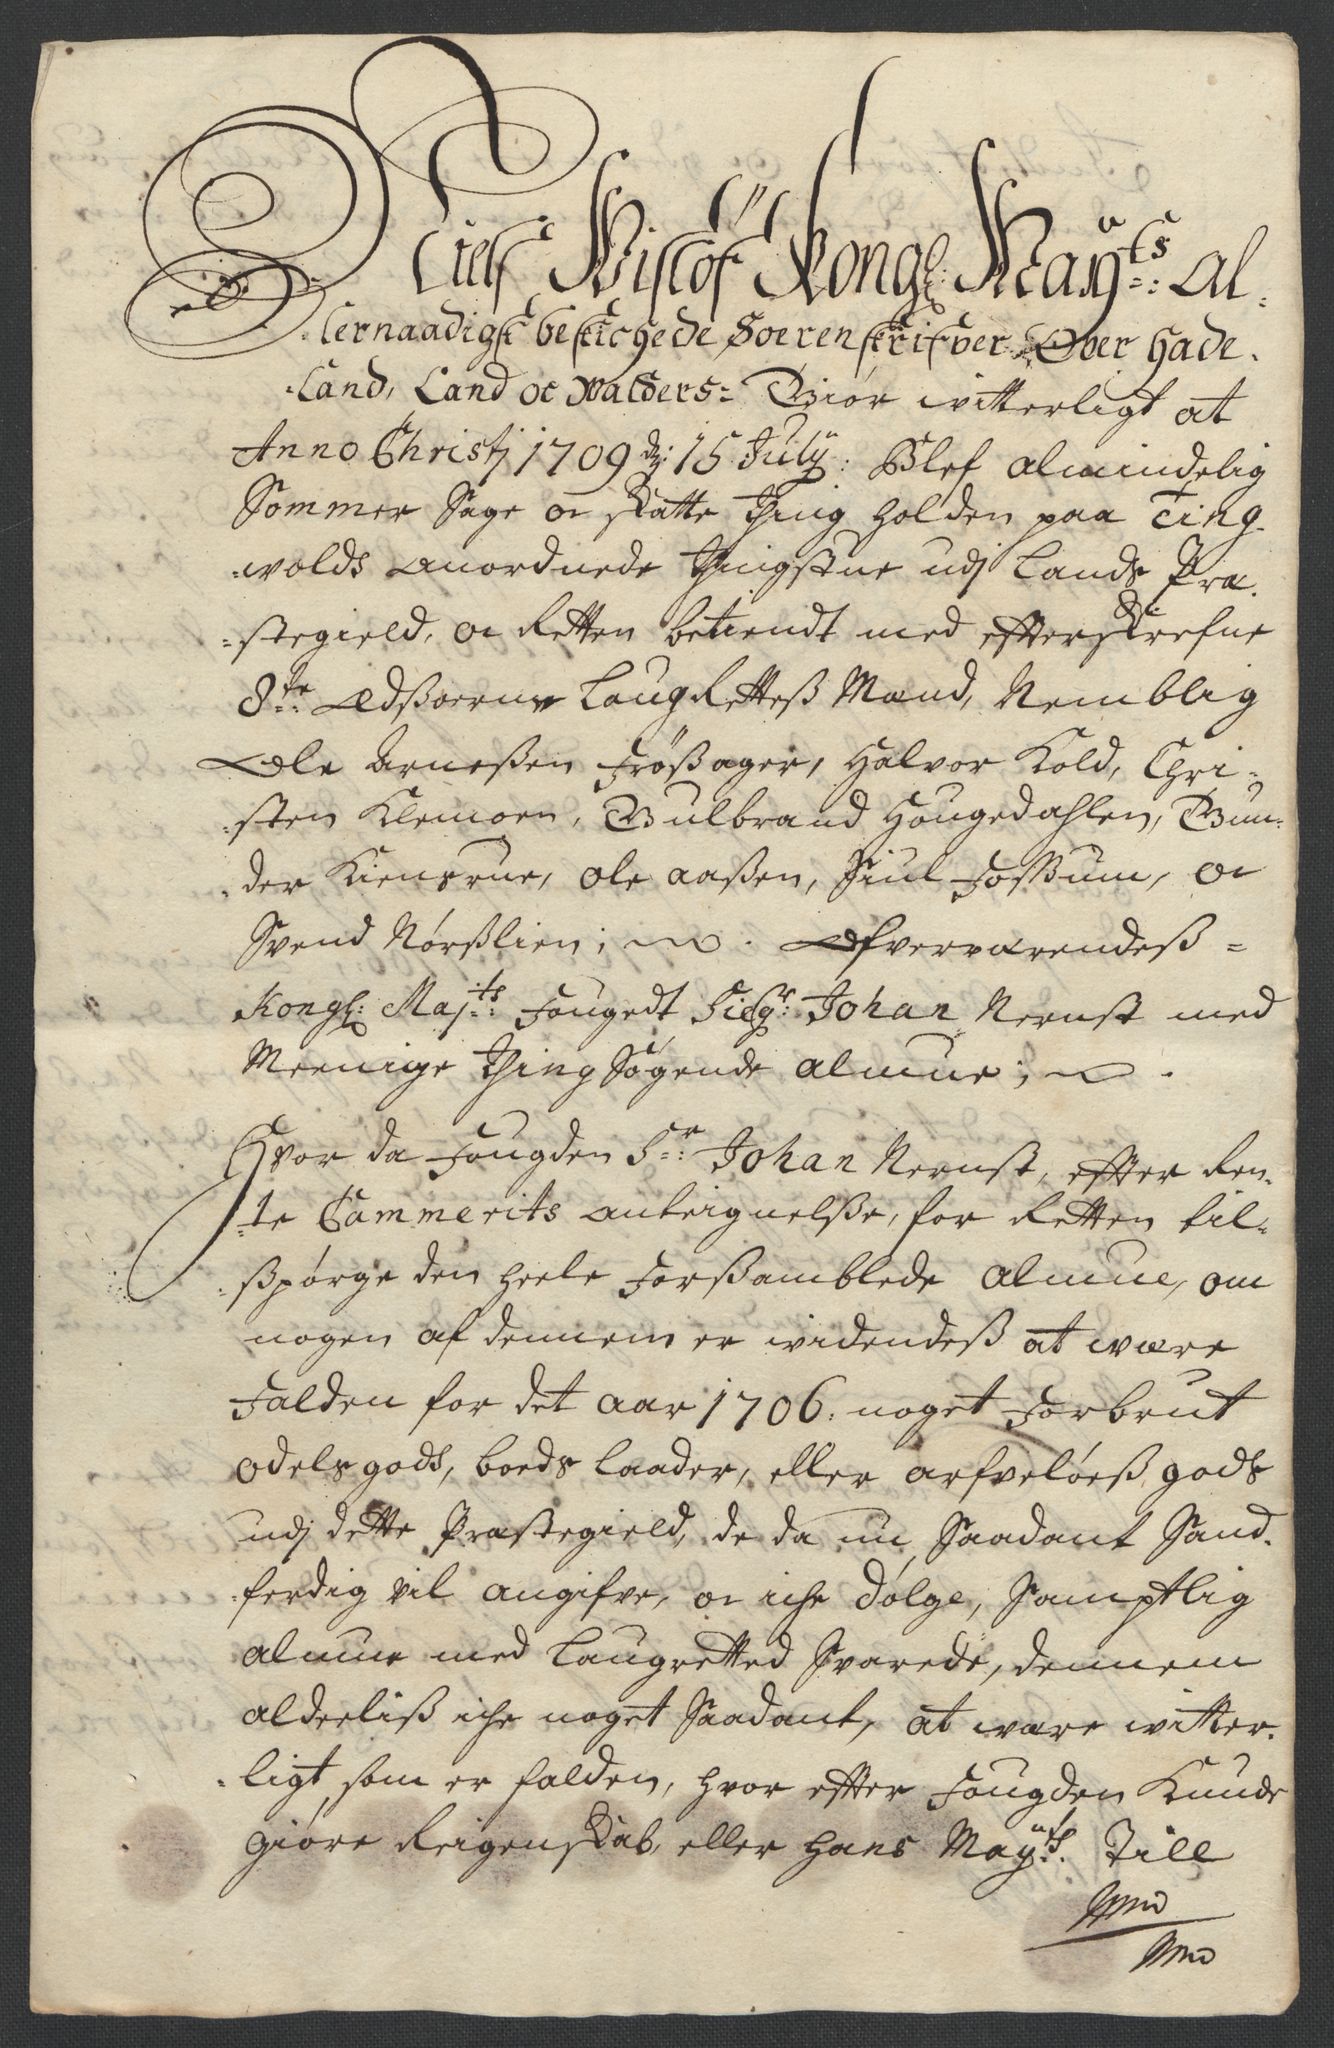 Niels Wislöf Kongl: Maÿts: Al-
lernaadigst beskichede Soerenskrifver Ofver Hade-
Land, Land oc Walders: Giör witterligt at
Anno Christj 1709 d: 15 Julÿ: Blef almindelig
Sommer Sage oc Skatte Thing holden paa Ting-
wolds anordnede Thingstue udj Lands Præ-
stegield, oc Retten betiendt med effterskrefne
8te Edsoerne LaugRettess Mænd, Nemblig
Ole Arnessen Frössager, Halvor Kold, Chri-
sten Klemoen, Gulbrand Hougedahlen, Gun-
der Kiensrue, Ole Aassen, Siul Fossum, oc
Svend Nørsslien; Ofverværendess
Kongl: Majts: Fougedt Sieg: Johan Nernst med
Meenige Thing Søgende Almue;
Hvor da Fougden Sr: Johan Nernst, effter Ren-
te Cammerits anteignelsse, for Retten til-
sspørge den heele Forssamblede Almue, om
nogen af dennem er widendess at være
Falden for det aar 1706. noget Forbrut
odels gods, boeds laader, eller arfveløess gods
udj dette Præstegield, de da nu Saadant Sand-
ferdig vil angifve, oc iche dølge, Samptlig
Almue med Laugretted Svarede, dennem
alderliss iche noget Saadant, at være witter-
ligt, som er falden, hvor effter Fougden Kunde
giøre Reigenskab, eller Hans Maÿts. Till